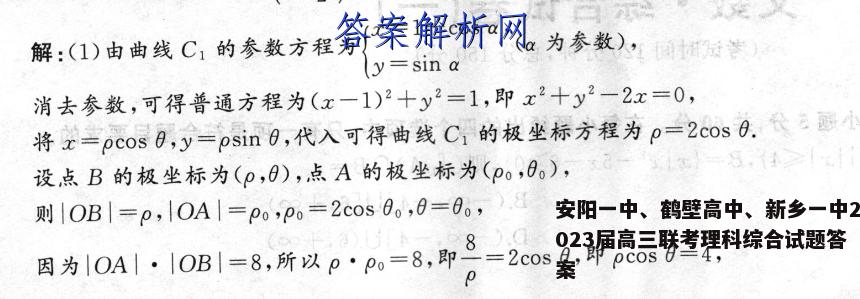 答案解析网
解:(1)由曲线 C₁ 的参数方程为{x=1+cos α (α 为参数),
y=sin α
消去参数,可得普通方程为(x-1)²+y²=1,即 x²+y²-2x=0,
将 x=ρcos θ,y=ρsin θ,代入可得曲线 C₁ 的极坐标方程为 ρ=2cos θ.
设点 B 的极坐标为(ρ,θ),点 A 的极坐标为(ρ₀,θ₀),
则|OB|=ρ,|OA|=ρ₀,ρ₀=2cos θ₀,θ=θ₀,
因为|OA|·|OB|=8,所以 ρ·ρ₀=8,即8/ρ=2cos θ,即 ρcos θ=4,
安阳一中、鹤壁高中、新乡一中2
023届高三联考理科综合试题答
案